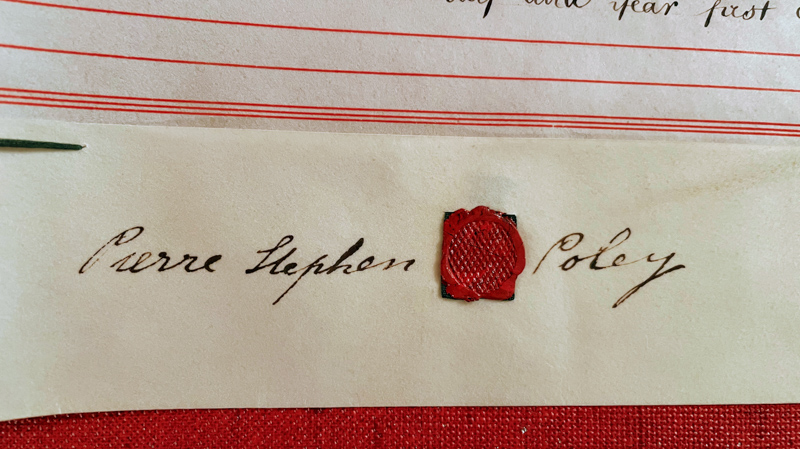 and year first
Pierre Stephen Poley